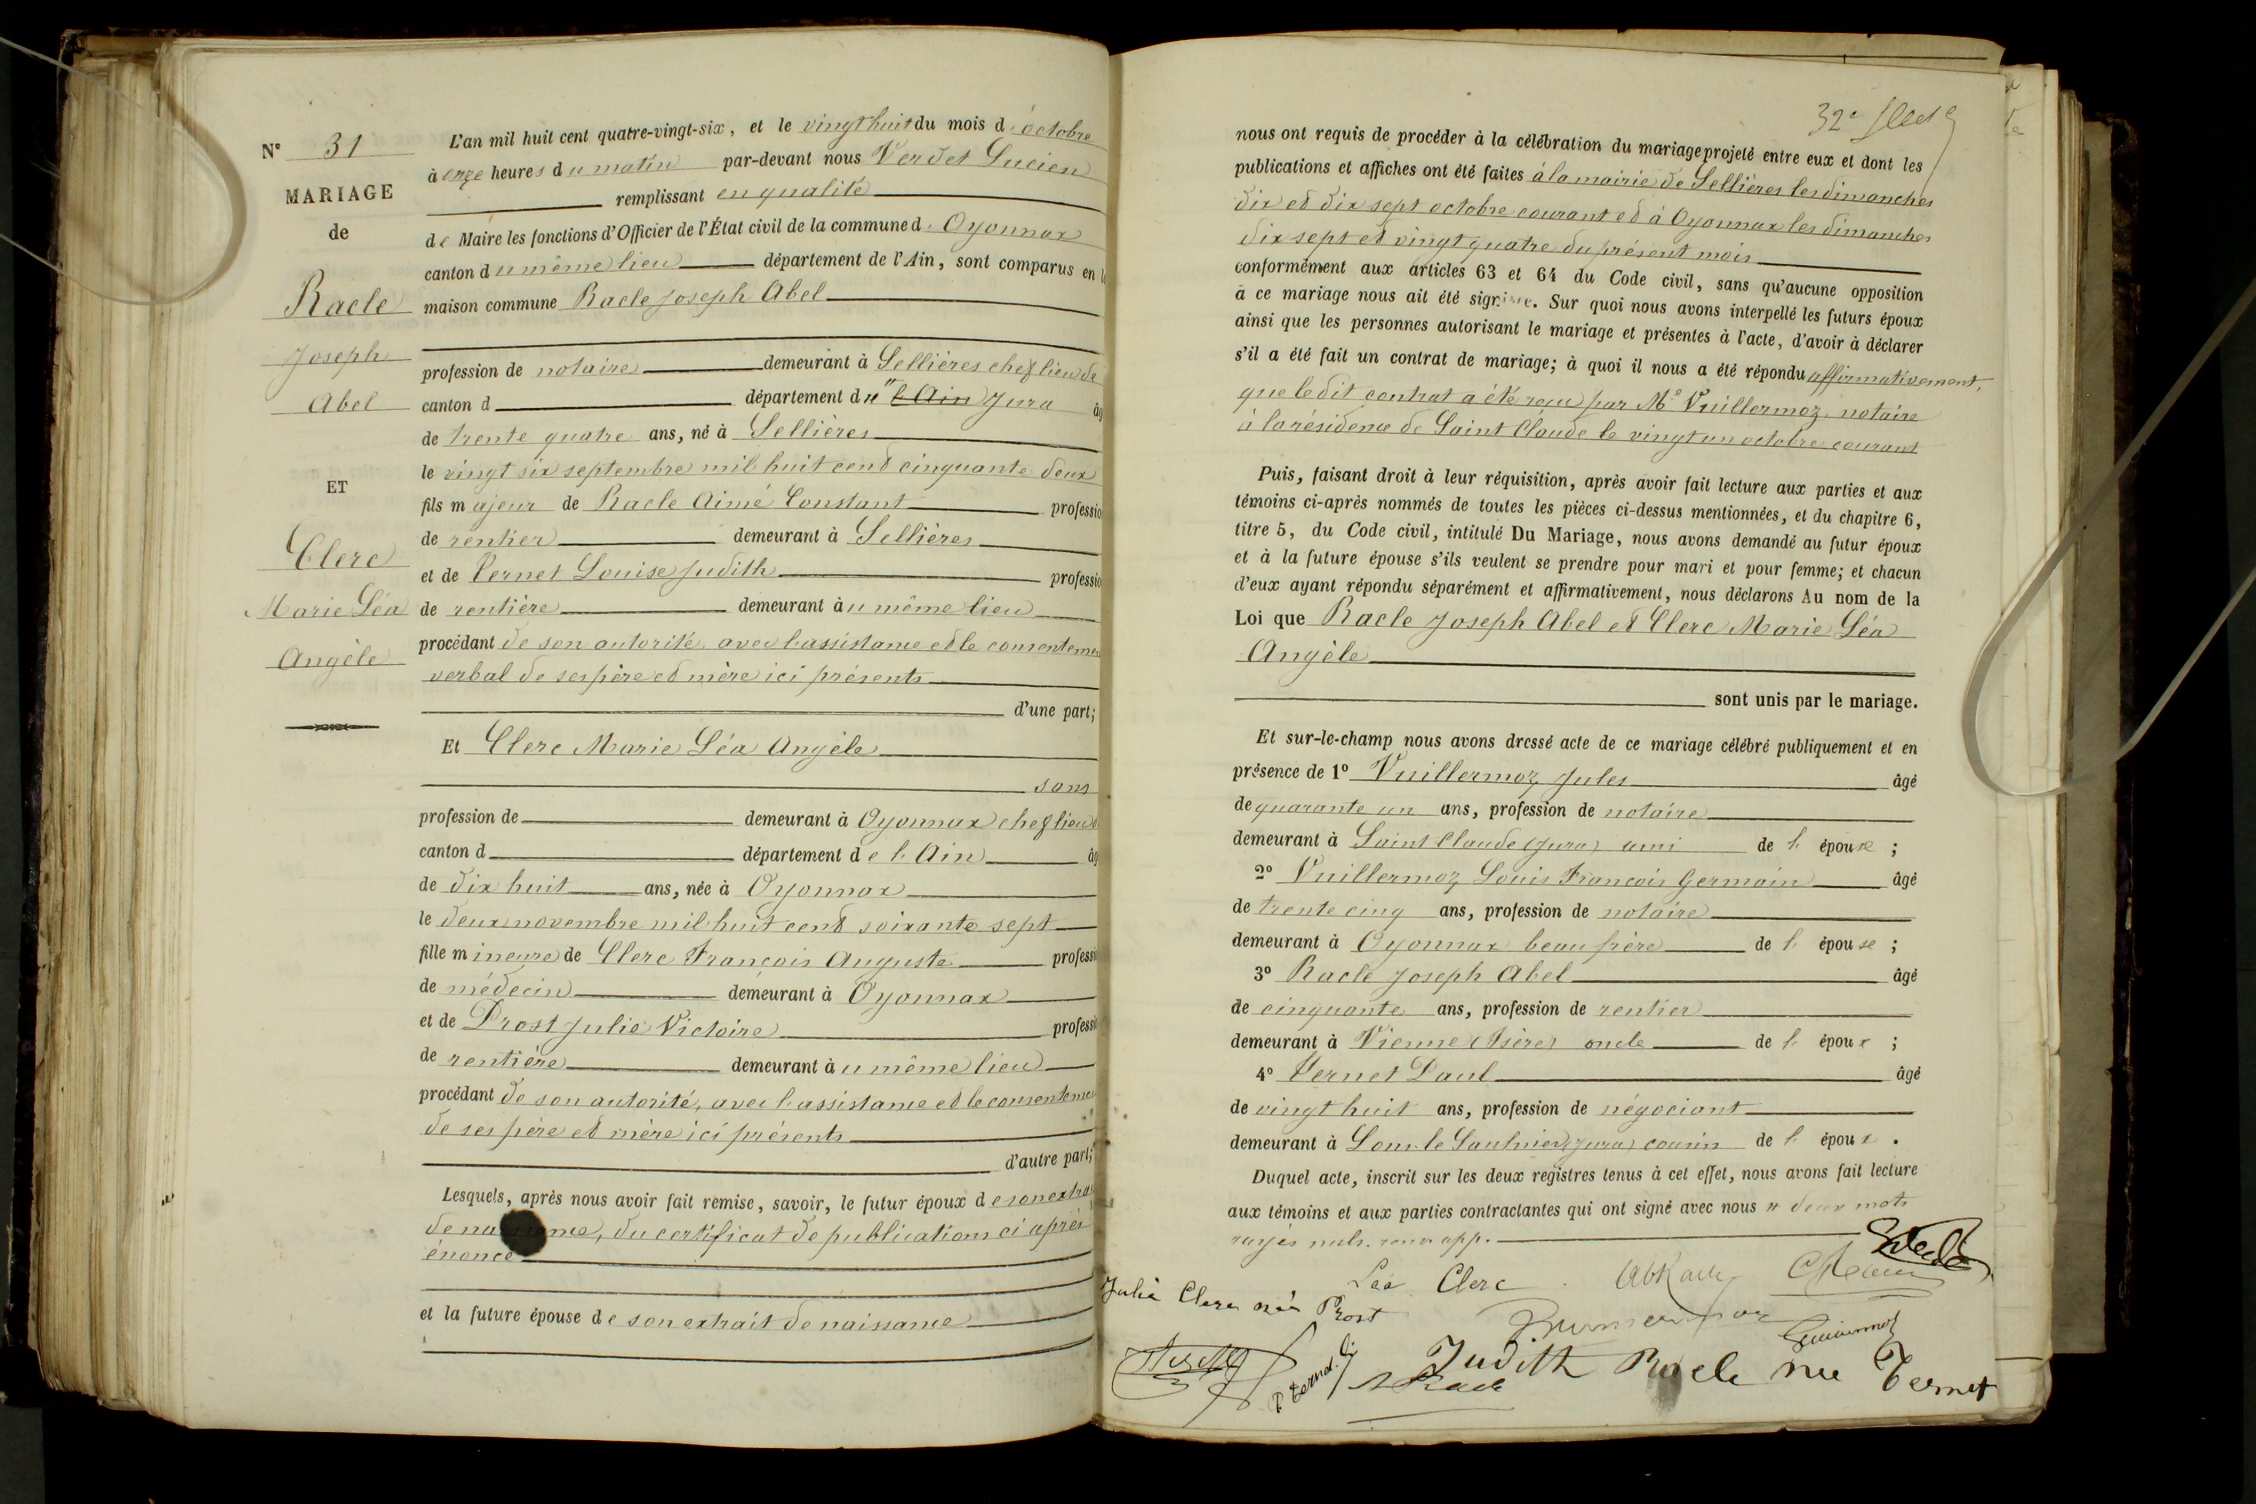 N° 31
MARIAGE
de
Racle
Joseph
Abel
ET
Clerc
Marie Léa
Angèle
L'an mil huit cent quatre-vingt-six, et le vingt huit du mois d'octobre
à onze heures du matin par-devant nous Verdet Lucien
remplissant en qualité
de Maire les fonctions d'Officier de l'État civil de la commune d'Oyonnax
canton du même lieu département de l'Ain, sont comparus en la
maison commune Racle Joseph Abel
profession de notaire demeurant à Sellières chef lieu de
canton d département du " l'Ain Jura âg
de trente quatre ans, né à Sellières
le vingt six septembre mil huit cent cinquante deux
fils majeur de Racle Aimé Constant professio
de rentier demeurant à Sellières
et de Vernet Louise Judith professio
de rentière demeurant au même lieu
procédant de son autorité, avec l'assistance et le consenteme
verbal de ses père et mère ici présents
d'une part;
Et Clerc Marie Léa Angèle
sans
profession de demeurant à Oyonnax chef lieu d
canton d département de l'Ain âg
de dix huit ans, née à Oyonnax
le deux novembre mil huit cent soixante sept
fille mineure de Clerc François Auguste professi
de médecin demeurant à Oyonnax
et de Prost Julie Victoire professi
de rentière demeurant au même lieu
procédant de son autorité, avec l'assistance et le consenteme
de ses père et mère ici présents
d'autre part;
Lesquels, après nous avoir fait remise, savoir, le futur époux de son extra
de na me, du certificat de publications ci après
énoncé
et la future épouse de son extrait de naissance
32e
nous ont requis de procéder à la célébration du mariage projeté entre eux et dont les
publications et affiches ont été faites à la mairie de Sellières les dimanches
dix et dix sept octobre courant et à Oyonnax les dimanches
dix sept et vingt quatre du présent mois
conformément aux articles 63 et 64 du Code civil, sans qu'aucune opposition
à ce mariage nous ait été signifiée. Sur quoi nous avons interpellé les futurs époux
ainsi que les personnes autorisant le mariage et présentes à l'acte, d'avoir à déclarer
s'il a été fait un contrat de mariage; à quoi il nous a été répondu affirmativement,
que ledit contrat a été reçu par Me Vuillermoz notaire
à la résidence de Saint Claude le vingt un octobre courant
Puis, faisant droit à leur réquisition, après avoir fait lecture aux parties et aux
témoins ci-après nommés de toutes les pièces ci-dessus mentionnées, et du chapitre 6,
titre 5, du Code civil, intitulé Du Mariage, nous avons demandé au futur époux
et à la future épouse s'ils veulent se prendre pour mari et pour femme; et chacun
d'eux ayant répondu séparément et affirmativement, nous déclarons Au nom de la
Loi que Racle Joseph Abel et Clerc Marie Léa
Angèle
sont unis par le mariage.
Et sur-le-champ nous avons dressé acte de ce mariage célébré publiquement et en
présence de 1° Vuillermoz Jules âgé
de quarante un ans, profession de notaire
demeurant à Saint Claude (Jura) ami de l'épouse ;
2° Vuillermoz Louis François Germain âgé
de trente cinq ans, profession de notaire
demeurant à Oyonnax beau frère de l'épouse ;
3° Racle Joseph Abel âgé
de cinquante ans, profession de rentier
demeurant à Vienne (Isère) oncle de l'époux ;
4° Vernet Paul âgé
de vingt huit ans, profession de négociant
demeurant à Lons le Saulnier (Jura) cousin de l'époux .
Duquel acte, inscrit sur les deux registres tenus à cet effet, nous avons fait lecture
aux témoins et aux parties contractantes qui ont signé avec nous " deux mots
rayés nuls. renv. app.
Léa Clerc AbRacle
Julie Clerc née Prost
P Vernet
A Racle
Judith Racle née Vernet